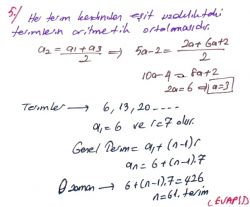 5/ Her terim kendinden eşit uzaklıktaki
terimlerin aritmetik ortalamasıdır.
a₂ = (a₁ + a₃)/2 ⟹ 5a-2 = (2a + 6a+2)/2
10a-4 = 8a+2
2a = 6 ⟹ a=3
Terimler → 6, 13, 20 ....
a₁ = 6 ve r = 7 olur.
Genel Terim = a₁ + (n-1)r
aₙ = 6 + (n-1).7
O zaman → 6 + (n-1).7 = 426
n = 61. terim
(CEVAP)